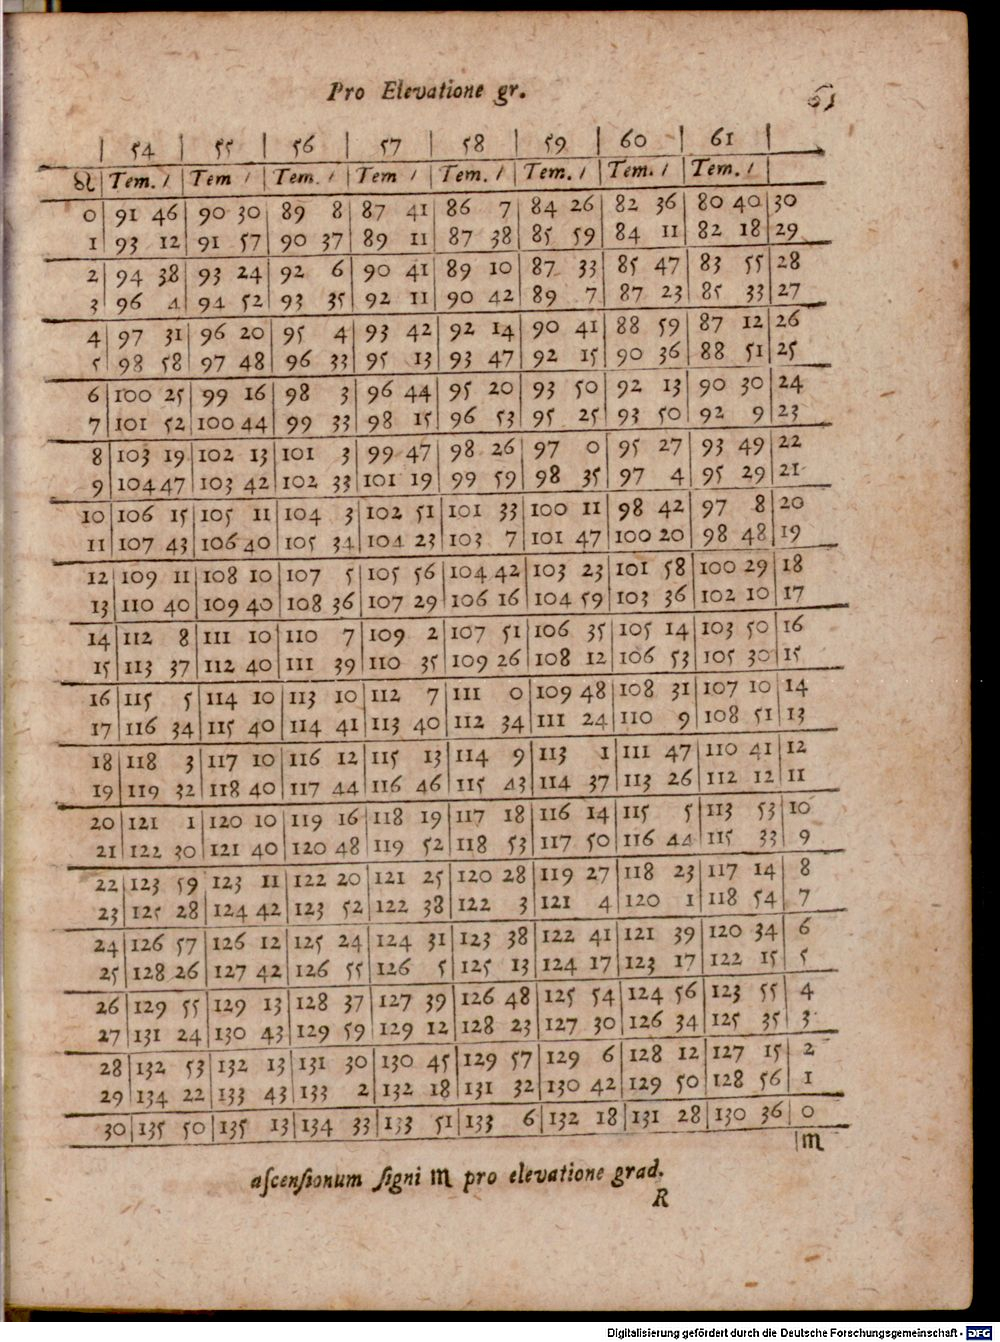 Pro Elevatione gr. 61
54 55 56 57 58 59 60 61
♌ Tem. / Tem / Tem. / Tem / Tem. / Tem. / Tem. / Tem. /
0 91 46 90 30 89 8 87 41 86 7 84 26 82 36 80 40 30
1 93 12 91 57 90 37 89 11 87 38 85 59 84 11 82 18 29
2 94 38 93 24 92 6 90 41 89 10 87 33 85 47 83 55 28
3 96 4 94 52 93 35 92 11 90 42 89 7 87 23 85 33 27
4 97 31 96 20 95 4 93 42 92 14 90 41 88 59 87 12 26
5 98 58 97 48 96 33 95 13 93 47 92 15 90 36 88 51 25
6 100 25 99 16 98 3 96 44 95 20 93 50 92 13 90 30 24
7 101 52 100 44 99 33 98 15 96 53 95 25 93 50 92 9 23
8 103 19 102 13 101 3 99 47 98 26 97 0 95 27 93 49 22
9 104 47 103 42 102 33 101 19 99 59 98 35 97 4 95 29 21
10 106 15 105 11 104 3 102 51 101 33 100 11 98 42 97 8 20
11 107 43 106 40 105 34 104 23 103 7 101 47 100 20 98 48 19
12 109 11 108 10 107 5 105 56 104 42 103 23 101 58 100 29 18
13 110 40 109 40 108 36 107 29 106 16 104 59 103 36 102 10 17
14 112 8 111 10 110 7 109 2 107 51 106 35 105 14 103 50 16
15 113 37 112 40 111 39 110 35 109 26 108 12 106 53 105 30 15
16 115 5 114 10 113 10 112 7 111 0 109 48 108 31 107 10 14
17 116 34 115 40 114 41 113 40 112 34 111 24 110 9 108 51 13
18 118 3 117 10 116 12 115 13 114 9 113 1 111 47 110 41 12
19 119 32 118 40 117 44 116 46 115 43 114 37 113 26 112 12 11
20 121 1 120 10 119 16 118 19 117 18 116 14 115 5 113 53 10
21 122 30 121 40 120 48 119 52 118 53 117 50 116 44 115 33 9
22 123 59 123 11 122 20 121 25 120 28 119 27 118 23 117 14 8
23 125 28 124 42 123 52 122 38 122 3 121 4 120 1 118 54 7
24 126 57 126 12 125 24 124 31 123 38 122 41 121 39 120 34 6
25 128 26 127 42 126 55 126 5 125 13 124 17 123 17 122 15 5
26 129 55 129 13 128 37 127 39 126 48 125 54 124 56 123 55 4
27 131 24 130 43 129 59 129 12 128 23 127 30 126 34 125 35 3
28 132 53 132 13 131 30 130 45 129 57 129 6 128 12 127 15 2
29 134 22 133 43 133 2 132 18 131 32 130 42 129 50 128 56 1
30 135 50 135 13 134 33 133 51 133 6 132 18 131 28 130 36 0
♏
ascensionum signi ♏ pro elevatione grad.
R
Digitalisierung gefördert durch die Deutsche Forschungsgemeinschaft - DFG